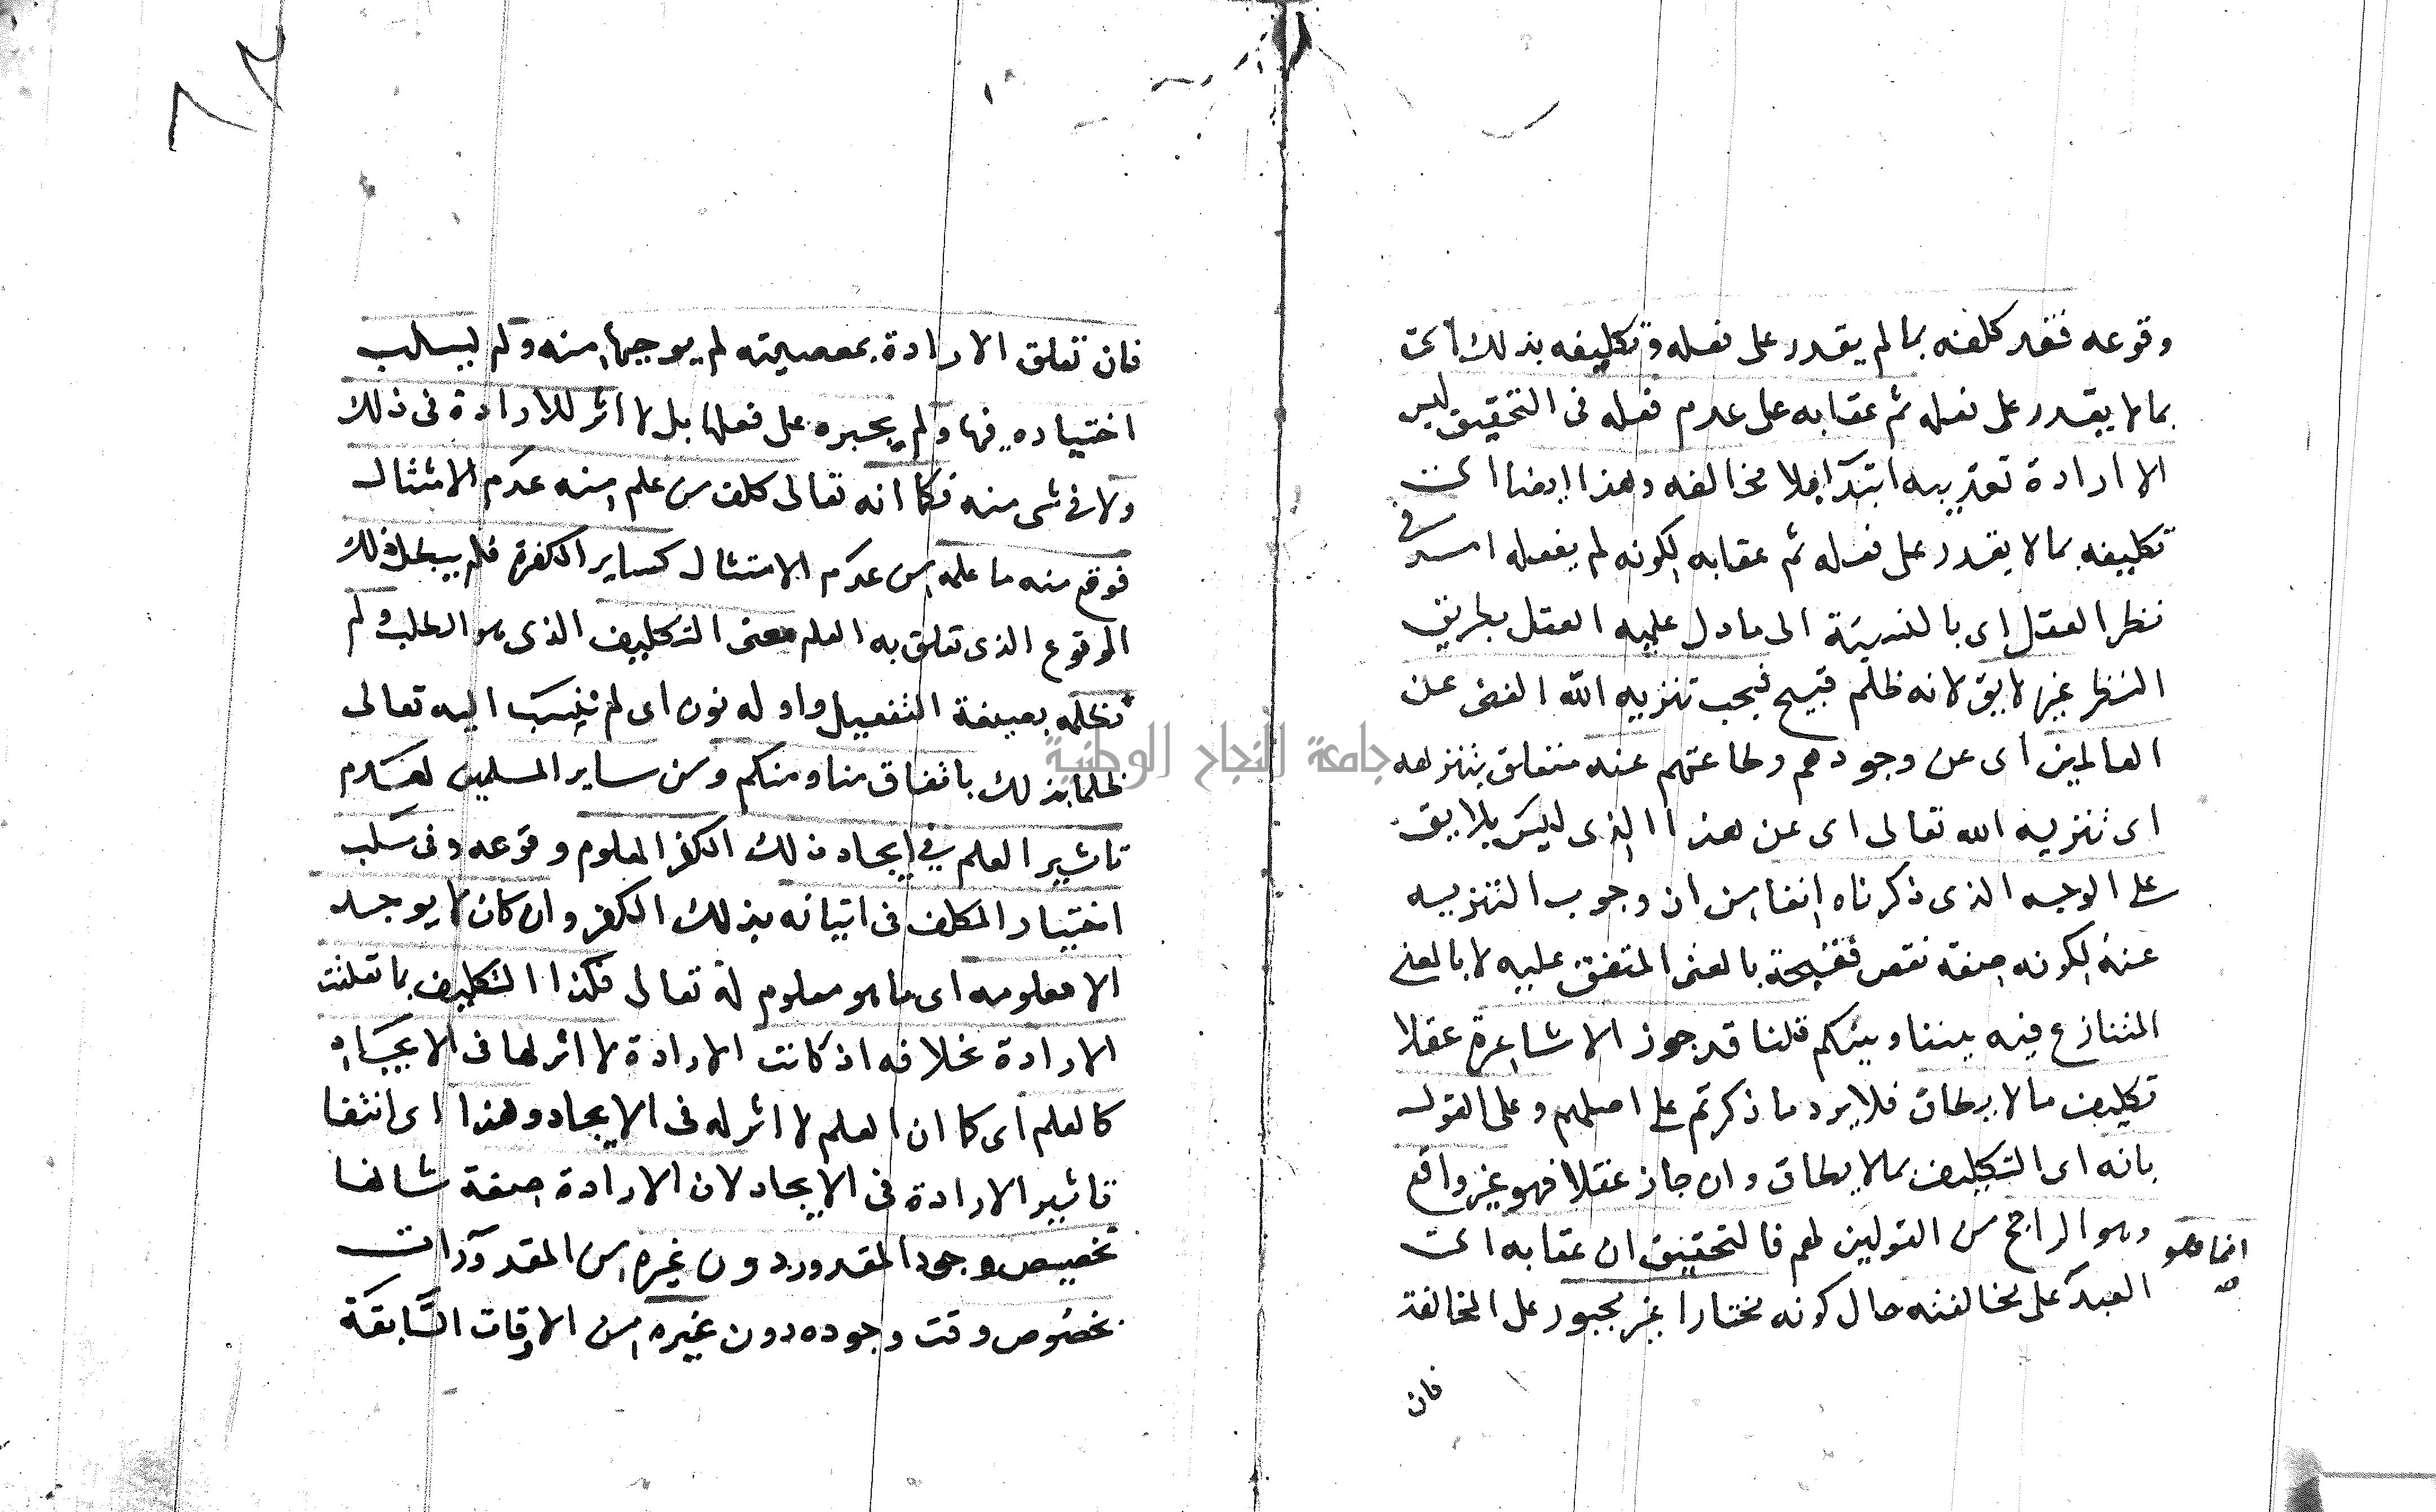 وقوعه فقد كلفه بما لم يقدر على فعله وتكليفه بذلك اى
بما لا يقدر على فعله ثم عقابه على عدم فعله فى التحقيق ليس
الا ارادة تعذيبه ابتدآ بلا مخالفه وهذا ايضا اى
تكليفه بما لا يقدر على فعله ثم عقابه لكونه لم يفعله امر فى
نظر العقل اى بالنسبة الى ما دل عليه العقل بطريق
النظر غير لايق لانه ظلم قبيح فيجب تنزيه الله الغنى عن
العالمين اى عن وجودهم وطاعتهم عنه متعلق بتنزهه
اى تنزيه الله تعالى اى عن هذا الذى ليس بلايق
على الوجه الذى ذكرناه انفا من ان وجوب التنزيه
عنه لكونه صفة نقص فقبيحة بالمعنى المتفق عليه لا بالمعنى
المتنازع فيه بيننا وبينكم قلنا قد جوز الاشاعرة عقلا
تكليف ما لا يطاق فلا يرد ما ذكرتم على اصلهم وعلى القول
بانه اى التكليف بما لا يطاق وان جاز عقلا فهو غير واقع
وهو الراجح من القولين لهم فالتحقيق ان عقابه اى
انما هو
العبد على مخالفته حال كونه مختارا غير مجبور على المخالفة
فان
فان تعلق الارادة بمعصيته لم يوجبها منه ولم يسلب
اختياره فيها ولم يجبره على فعلها بل لا اثر للارادة فى ذلك
ولا فى شى منه فكما انه تعالى كلف من علم منه عدم الامتثال
فوقع منه ما علمه من عدم الامتثال كساير الكفرة فلم يبطل ذلك
الوقوع الذى تعلق به العلم معنى التكليف الذى هو الطلب ولم
نظلمه بصيغة التفعيل واوله نون اى لم ننسب اليه تعالى
ظلما بذلك باتفاق منا ومنكم ومن ساير المسلمين لعدم
تاثير العلم فى ايجاد ذلك الكفر المعلوم وقوعه وفى سلب
اختيار المكلف فى اتيانه بذلك الكفر وان كان لا يوجد
الا معلومه اى ما هو معلوم له تعالى فكذا التكليف بما تعلقت
الارادة بخلافه اذ كانت الارادة لا اثر لها فى الايجاد
كالعلم اى كما ان العلم لا اثر له فى الايجاد وهذا اى انتفا
تاثير الارادة فى الايجاد لان الارادة صفة شانها
تخصيص وجود المقدور دون غيره من المقدورات
بخصوص وقت وجوده دون غيره من الاوقات السابقة
جامعة النجاح الوطنية